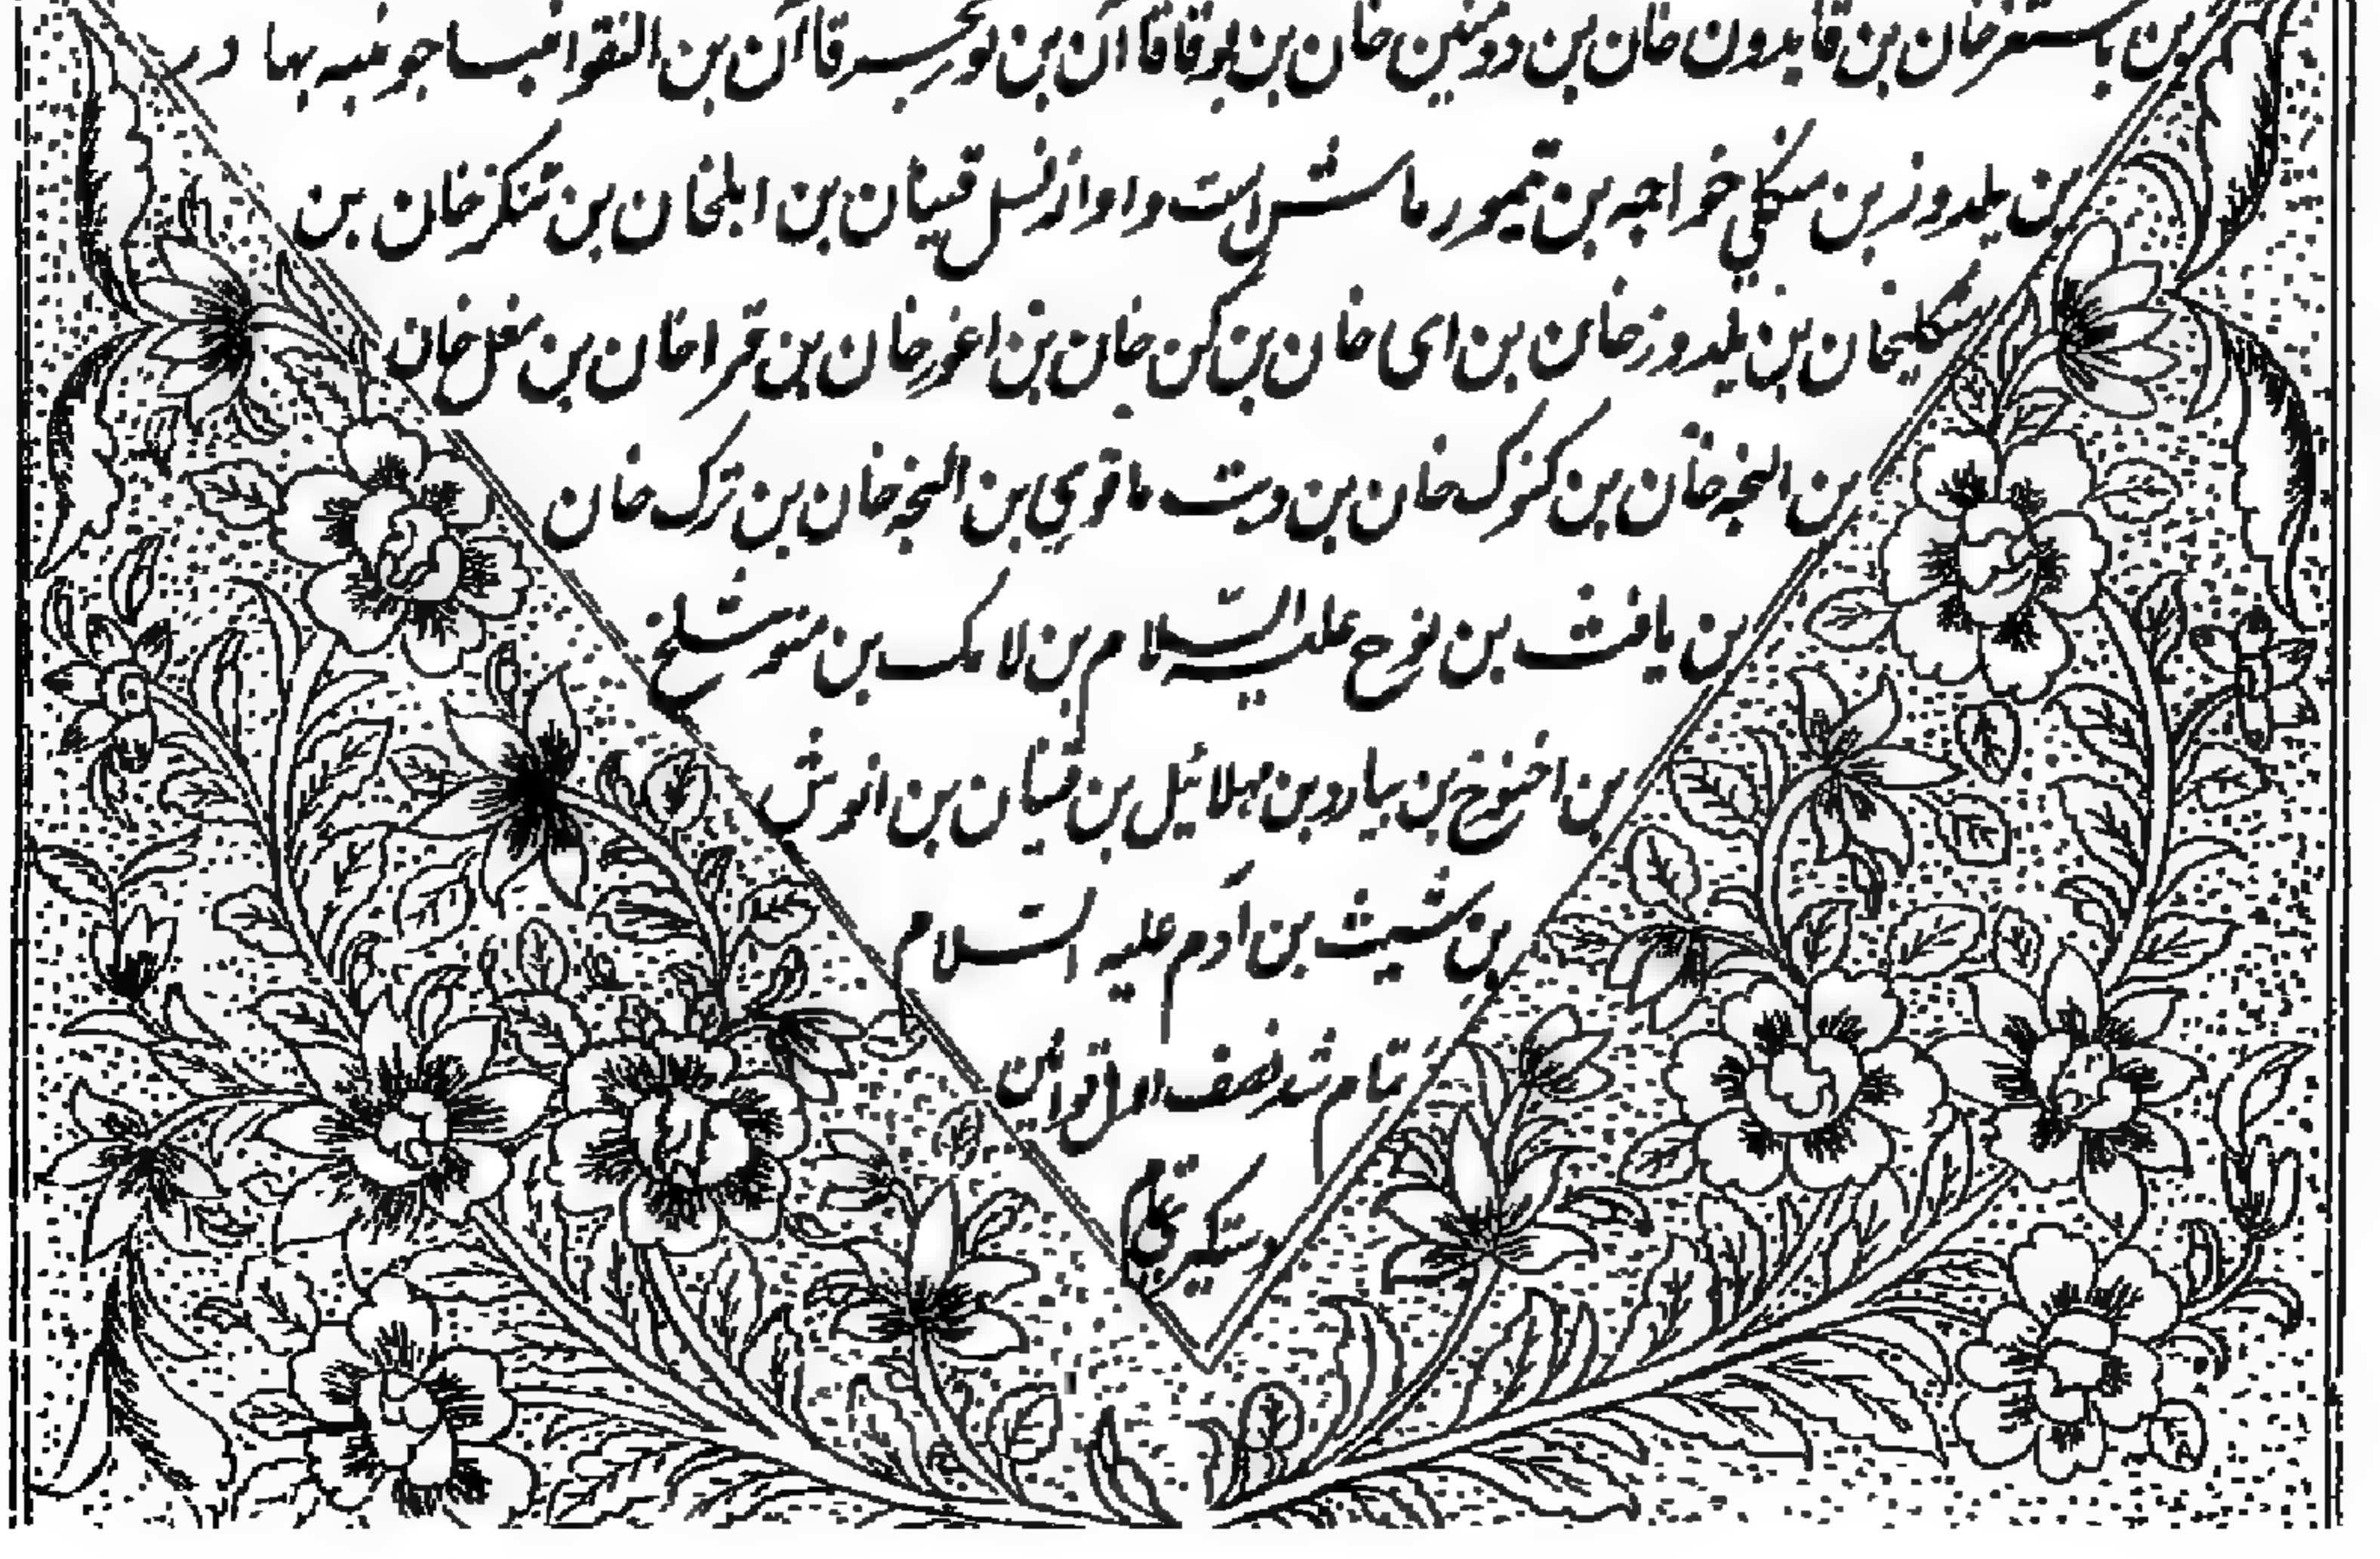 بن باسنقرخان بن قایدون خان بن دومنین خان بن بوقاقا آن بن بوزنجسرقا آن بن النقوا نسا جوبنیه بهادر
بن یلدوز بن منکلی خواجه بن تیمور ماش است واو از نسل قینان بن ایلخان بن تنکزخان بن
منکلیخان بن یلدوزخان بن ای خان بن کن خان بن اغورخان بن قراخان بن مغل خان
بن النجه خان بن کنوک خان بن دیت ماقویی بن النجه خان بن ترک خان
بن یافث بن نوح علیه السلام بن لامک بن متوشلخ
بن اخنوخ بن یارد بن مهلائیل بن قینان بن انوش
بن شیث بن آدم علیه السلام
تمام شد نصف
دستکیر قلی